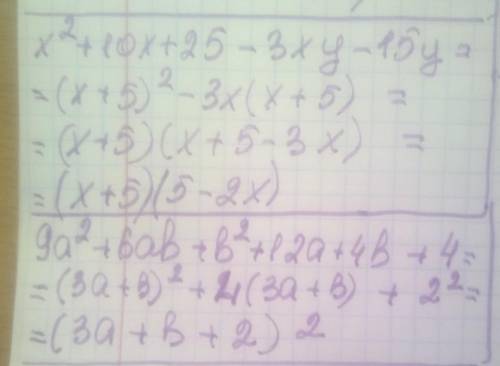 x²+10x+25-3xy-15y=
=(x+5)²-3x(x+5) =
=(x+5)(x+5-3x) =
=(x+5)(5-2x)
9a²+6ab+b²+12a+4b+4=
=(3a+b)²+4(3a+b)+2²=
=(3a+b+2)2